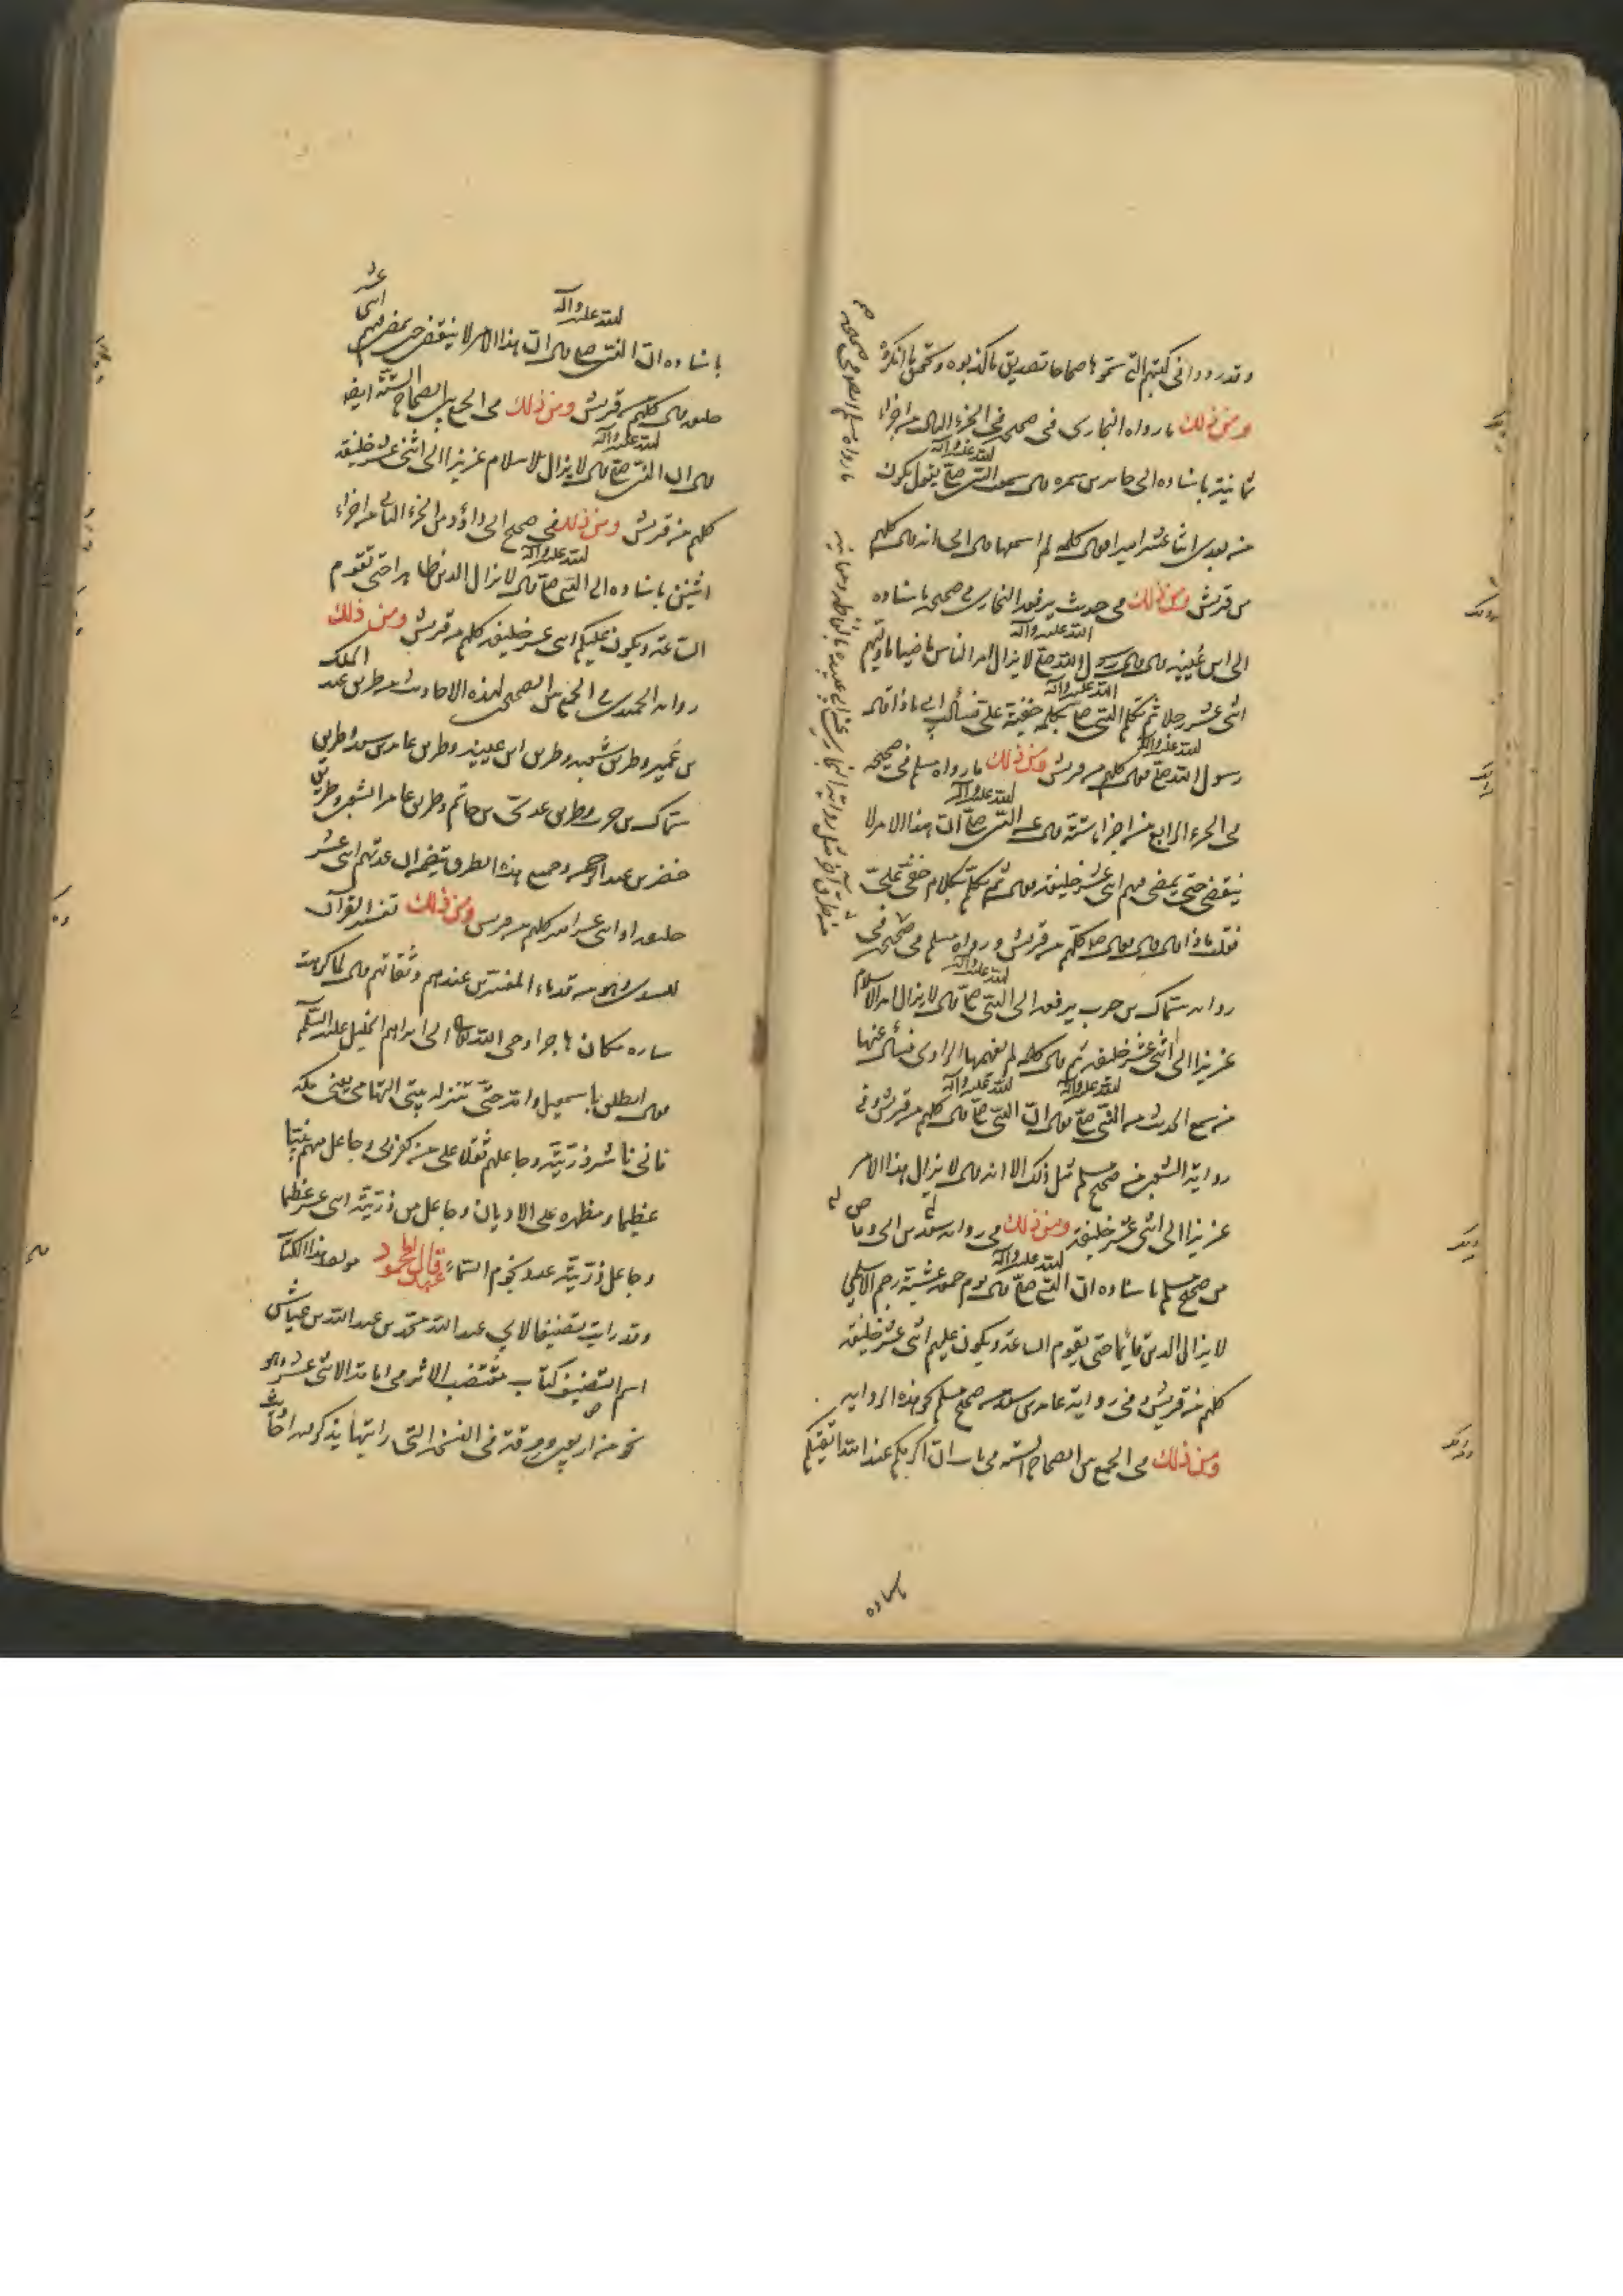 وقد رووا في كتبهم التي سموها صحاحا تصديق ما كذبوه وتحقيق ما انكروه
ومن ذلك ما رواه البخاري في صحيحه في الجزء الثامن من اجزاء
ثمانية باسناده الى جابر بن سمرة قال سمعت النبي صلى الله عليه وآله يقول يكون
من بعدي اثنا عشر اميرا فقال كلمة لم اسمعها قال ابي انه قال كلهم
من قريش ومن ذلك في حديث يرفعه البخاري في صحيحه باسناده
الى ابن عيينه قال قال رسول الله صلى الله عليه وآله لا يزال امر الناس ماضيا ما وليهم
اثنى عشر رجلا ثم تكلم النبي صلى الله عليه وآله بكلمة خفيت علي فسألت ابي ماذا قال
رسول الله صلى الله عليه وآله فقال كلهم من قريش ومن ذلك ما رواه مسلم في صحيحه
في الجزء الرابع من اجزاء ستة قال عن النبي صلى الله عليه وآله ان هذا الامر لا
ينقضي حتى يمضي فيهم اثنى عشر خليفة قال ثم تكلم بكلام خفي علي
فقلت ماذا قال قال كلهم من قريش ورواه مسلم في صحيحه في
رواية سماك بن حرب يرفعه الى النبي صلى الله عليه وآله قال لا يزال امر الاسلام
عزيزا الى اثنى عشر خليفة ثم قال كلمة لم يفهمها الراوي فسأل عنها
من سمع الحديث من النبي صلى الله عليه وآله فقال ان النبي صلى الله عليه وآله قال كلهم من قريش وفي
رواية الشعبي من صحيح مسلم مثل ذلك الا انه قال لا يزال هذا الامر
عزيزا الى اثنى عشر خليفة ومن ذلك في رواية سعد بن ابي وقاص
من صحيح مسلم باسناده ان النبي صلى الله عليه وآله قال يوم جمعة عشية رجم الاسلمي
لا يزال الدين قائما حتى يقوم الساعة ويكون عليهم اثنى عشر خليفة
كلهم من قريش وفي رواية عامر بن سعد من صحيح مسلم نحو هذه الرواية
ومن ذلك في الجمع بين الصحاح الستة في باب ان اكرمكم عند الله اتقيكم
باسناده
باسناده ان النبي صلى الله عليه وآله قال ان هذا الامر لا ينقضي حتى يمضي فيهم اثنى عشر
خليفة قال كلهم من قريش ومن ذلك في الجمع بين الصحاح الستة ايضا
قال ان النبي صلى الله عليه وآله قال لا يزال الاسلام عزيزا الى اثنى عشر خليفة
كلهم من قريش ومن ذلك في صحيح ابي داؤد من الجزء الثاني من اجزاء
اثنين باسناده الى النبي صلى الله عليه وآله قال لا يزال الدين ظاهرا حتى تقوم
الساعة ويكون عليكم اثنى عشر خليفة كلهم من قريش ومن ذلك
رواية الحميدي في الجمع بين الصحيحين لهذه الاحاديث من طريق عبد الملك
بن عمير وطريق شعبه وطريق ابن عيينه وطريق عامر بن سعد وطريق
سماك بن حرب وطريق عدي بن حاتم وطريق عامر الشعبي وطريق
حضر بن عبد الرحمن وجميع هذه الطرق يتضمن ان عدتهم اثنى عشر
خليفة او اثنى عشر امير كلهم من قريش ومن ذلك تفسير القرآن
للسدي وهو من قدماء المفسرين عندهم وثقاتهم قال لما كرهت
ساره مكان هاجر اوحى الله تعالى الى ابراهيم الخليل عليه السلام
فقال انطلق باسمعيل وامه حتى تنزله بيتي التهامي يعني مكة
فاني ناشر ذريته وجاعلهم ثقلا على من كفر بي وجاعل منهم نبيا
عظيما ومظهره على الاديان وجاعل من ذريته اثنى عشر عظيما
وجاعل ذريته عدد نجوم السماء قال عبد المحمود مولف هذا الكتاب
وقد رايت تصنيفا لابي عبد الله محمد بن عبد الله بن عياش
اسم التصنيف كتاب مقتضب الاثر في امامة الاثنى عشر وهو
نحو من اربعين ورقة في النسخة التي رايتها يذكر فيه احاديث